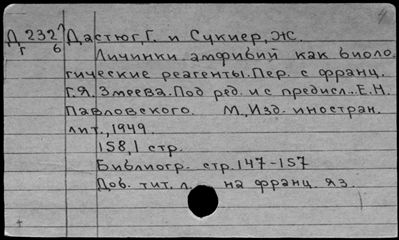 Д 232 Дастюг, Г. и Сукиер, Ж.
г б
Личинки амфибий как биоло-
гические реагенты. Пер. с франц.
Г.Я. Змеева. Под ред. и с предисл. Е.Н.
Павловского. М., Изд. иностран.
лит., 1949.
158,1 стр.
Библиогр. стр. 147-157
Доб. тит. л. на франц. яз.